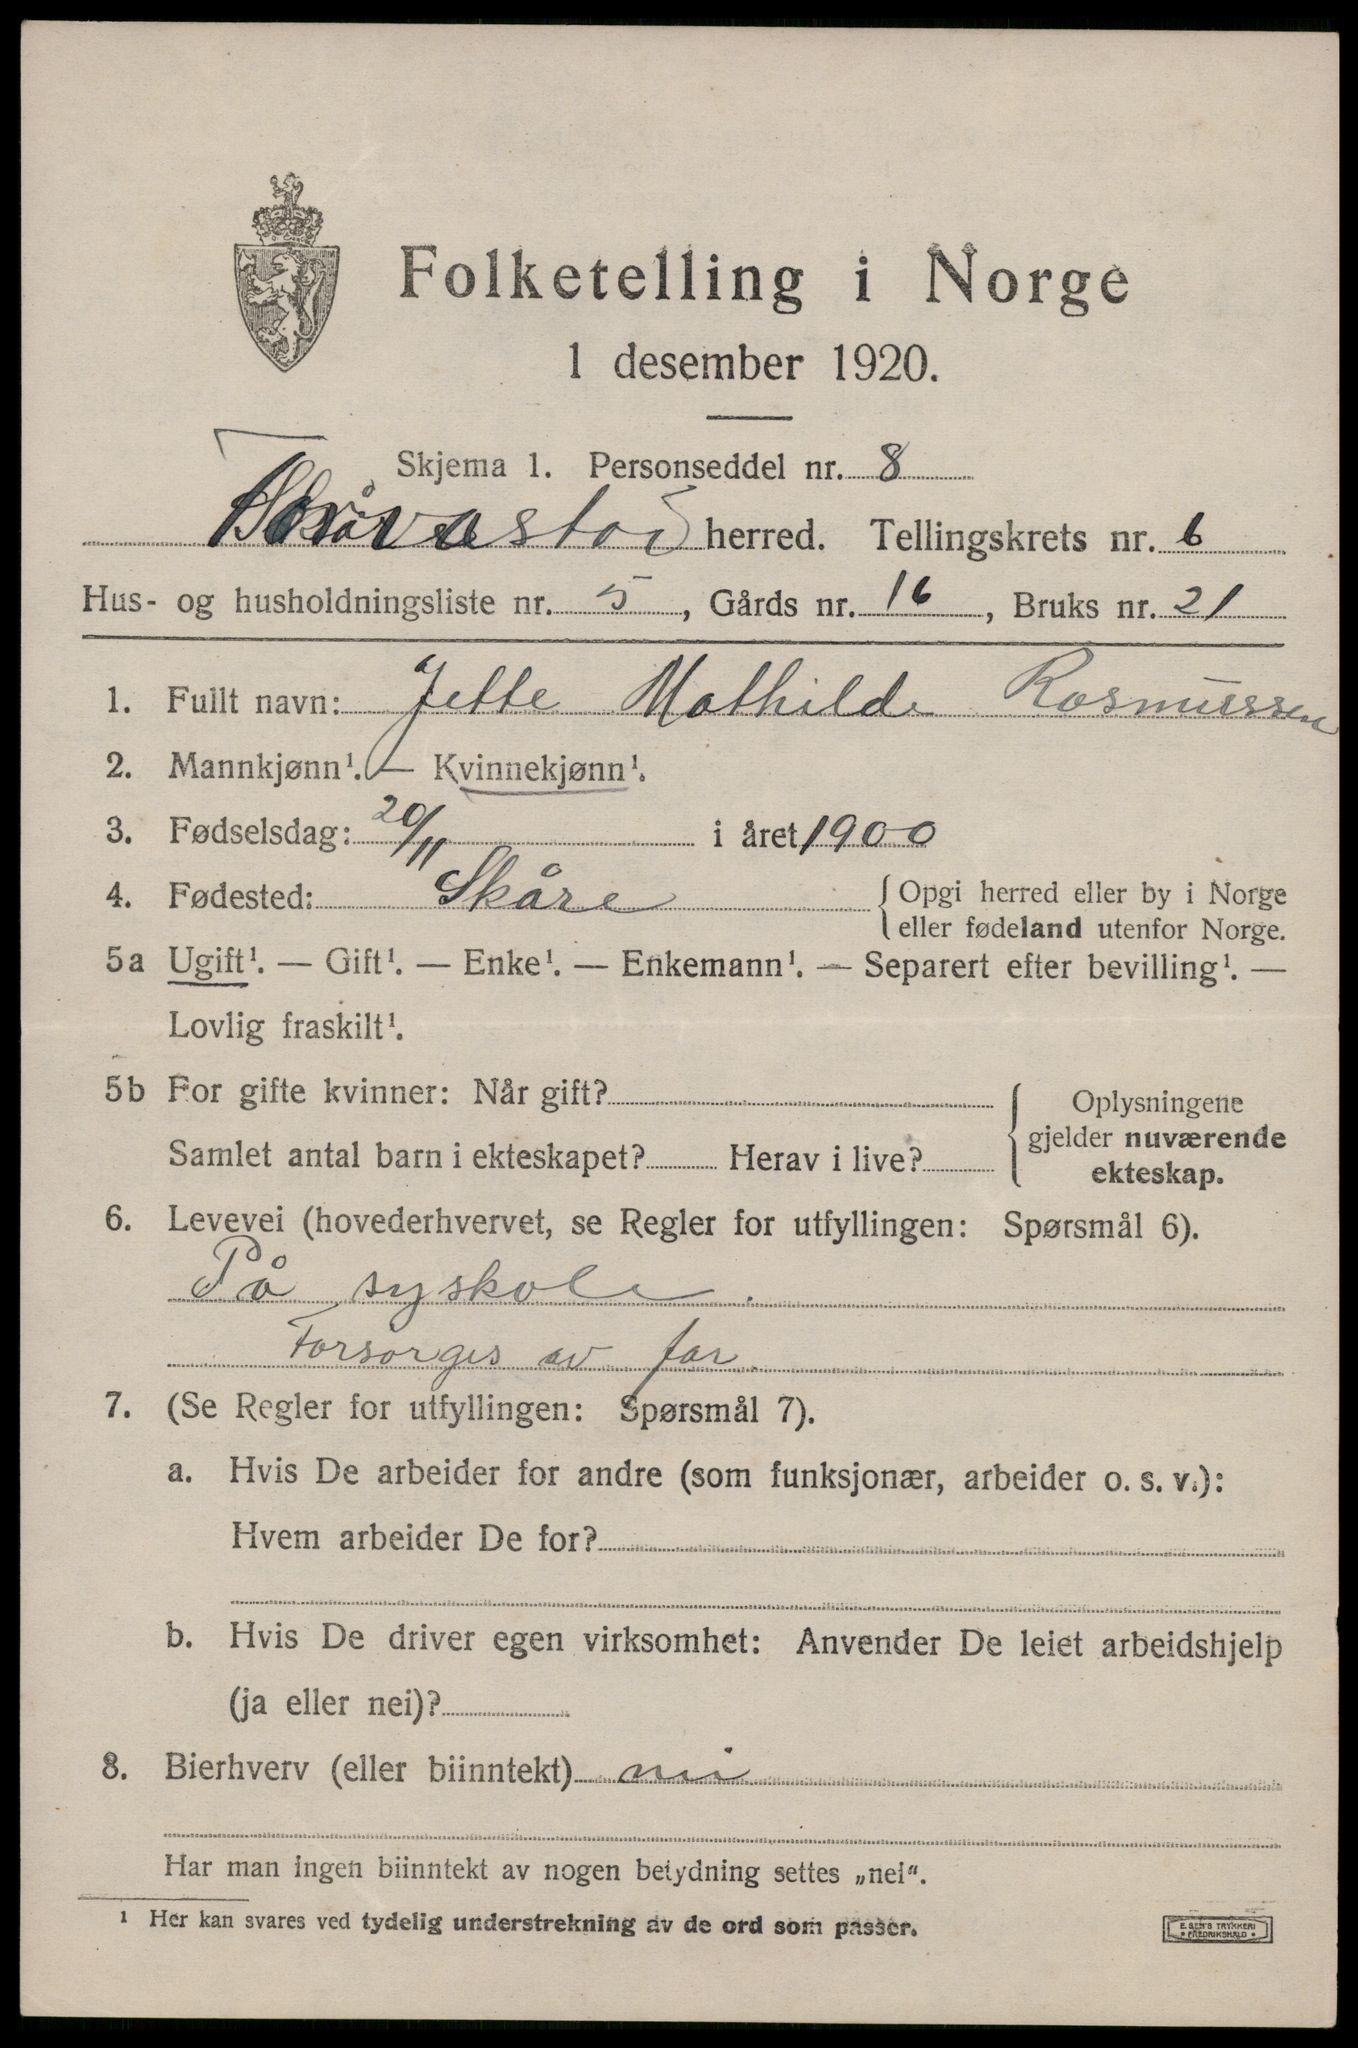 Folketelling i Norge
1 desember 1920.
Skjema 1. Personseddel nr. 8
herred. Tellingskrets nr. 6
Hus- og husholdningsliste nr. 5, Gårds nr. 16, Bruks nr. 21
1. Fullt navn: Jette Mathilde Rasmussen
2. Mannkjønn¹. — Kvinnekjønn¹.
3. Fødselsdag: 20/11 i året 1900
4. Fødested: Skåre { Opgi herred eller by i Norge
eller fødeland utenfor Norge.
5a Ugift¹. — Gift¹. — Enke¹. — Enkemann¹. — Separert efter bevilling¹. —
Lovlig fraskilt¹.
5b For gifte kvinner: Når gift?
Samlet antal barn i ekteskapet? Herav i live?
Oplysningene
gjelder nuværende
ekteskap.
6. Levevei (hovederhvervet, se Regler for utfyllingen: Spørsmål 6).
På syskole.
Forsorges av far
7. (Se Regler for utfyllingen: Spørsmål 7).
a. Hvis De arbeider for andre (som funksjonær, arbeider o. s. v.):
Hvem arbeider De for?
b. Hvis De driver egen virksomhet: Anvender De leiet arbeidshjelp
(ja eller nei)?
8. Bierhverv (eller biinntekt) nei
Har man ingen biinntekt av nogen betydning settes „nei“.
¹ Her kan svares ved tydelig understrekning av de ord som passer.
E. SEM'S TRYKKERI
FREDRIKSHALD